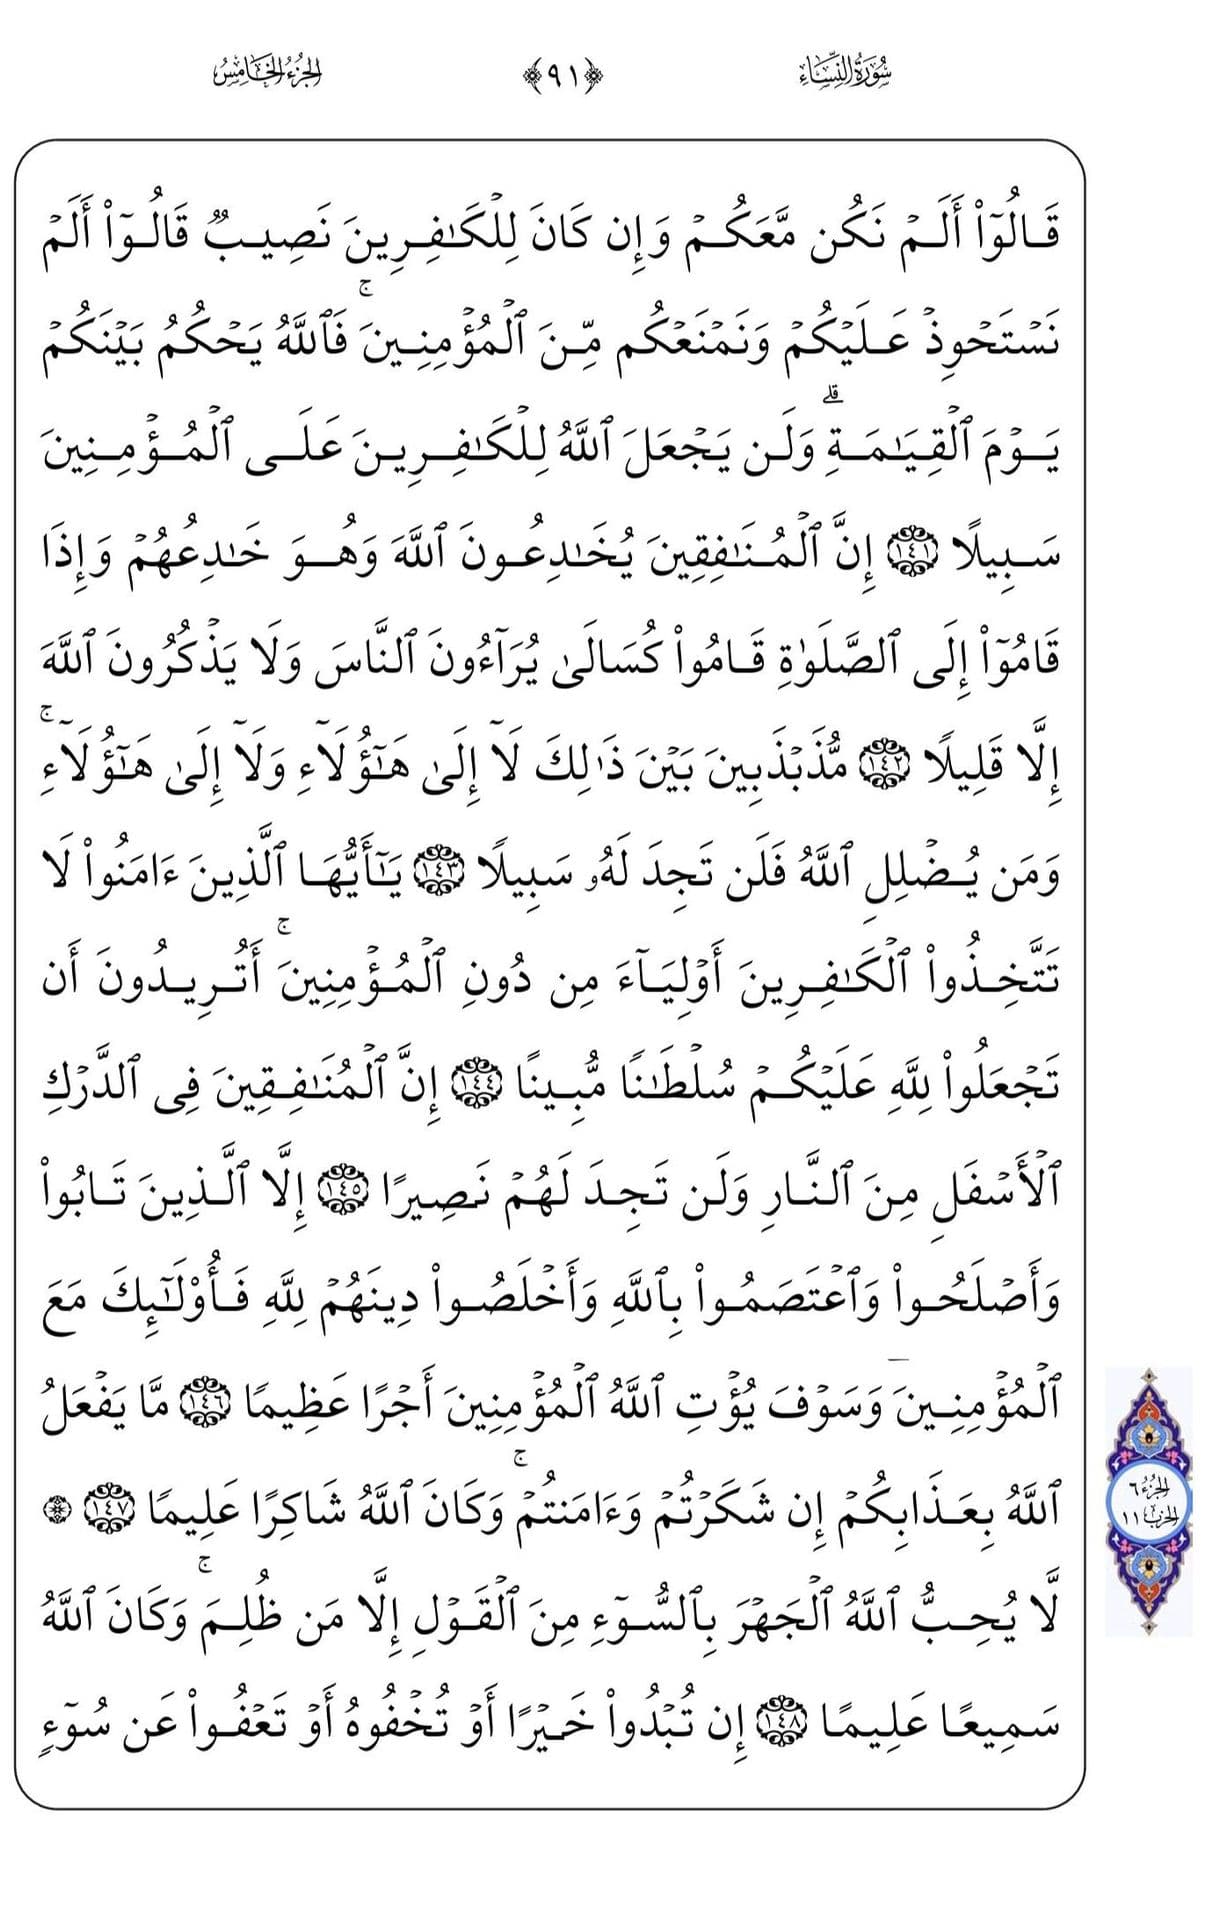 سُورَةُ النِّسَاءِ ﴿٩١﴾ الجُزْءُ الخَامِسُ
قَالُوٓاْ أَلَمۡ نَكُن مَّعَكُمۡ وَإِن كَانَ لِلۡكَٰفِرِينَ نَصِيبٞ قَالُوٓاْ أَلَمۡ
نَسۡتَحۡوِذۡ عَلَيۡكُمۡ وَنَمۡنَعۡكُم مِّنَ ٱلۡمُؤۡمِنِينَۚ فَٱللَّهُ يَحۡكُمُ بَيۡنَكُمۡ
يَوۡمَ ٱلۡقِيَٰمَةِۗ وَلَن يَجۡعَلَ ٱللَّهُ لِلۡكَٰفِرِينَ عَلَى ٱلۡمُؤۡمِنِينَ
سَبِيلًا ١٤١ إِنَّ ٱلۡمُنَٰفِقِينَ يُخَٰدِعُونَ ٱللَّهَ وَهُوَ خَٰدِعُهُمۡ وَإِذَا
قَامُوٓاْ إِلَى ٱلصَّلَوٰةِ قَامُواْ كُسَالَىٰ يُرَآءُونَ ٱلنَّاسَ وَلَا يَذۡكُرُونَ ٱللَّهَ
إِلَّا قَلِيلًا ١٤٢ مُّذَبۡذَبِينَ بَيۡنَ ذَٰلِكَ لَآ إِلَىٰ هَٰٓؤُلَآءِ وَلَآ إِلَىٰ هَٰٓؤُلَآءِۚ
وَمَن يُضۡلِلِ ٱللَّهُ فَلَن تَجِدَ لَهُۥ سَبِيلًا ١٤٣ يَٰٓأَيُّهَا ٱلَّذِينَ ءَامَنُواْ لَا
تَتَّخِذُواْ ٱلۡكَٰفِرِينَ أَوۡلِيَآءَ مِن دُونِ ٱلۡمُؤۡمِنِينَۚ أَتُرِيدُونَ أَن
تَجۡعَلُواْ لِلَّهِ عَلَيۡكُمۡ سُلۡطَٰنٗا مُّبِينًا ١٤٤ إِنَّ ٱلۡمُنَٰفِقِينَ فِي ٱلدَّرۡكِ
ٱلۡأَسۡفَلِ مِنَ ٱلنَّارِ وَلَن تَجِدَ لَهُمۡ نَصِيرًا ١٤٥ إِلَّا ٱلَّذِينَ تَابُواْ
وَأَصۡلَحُواْ وَٱعۡتَصَمُواْ بِٱللَّهِ وَأَخۡلَصُواْ دِينَهُمۡ لِلَّهِ فَأُوْلَٰٓئِكَ مَعَ
ٱلۡمُؤۡمِنِينَۖ وَسَوۡفَ يُؤۡتِ ٱللَّهُ ٱلۡمُؤۡمِنِينَ أَجۡرًا عَظِيمٗا ١٤٦ مَّا يَفۡعَلُ
ٱللَّهُ بِعَذَابِكُمۡ إِن شَكَرۡتُمۡ وَءَامَنتُمۡۚ وَكَانَ ٱللَّهُ شَاكِرًا عَلِيمٗا ١٤٧ ۞
لَّا يُحِبُّ ٱللَّهُ ٱلۡجَهۡرَ بِٱلسُّوٓءِ مِنَ ٱلۡقَوۡلِ إِلَّا مَن ظُلِمَۚ وَكَانَ ٱللَّهُ
سَمِيعًا عَلِيمًا ١٤٨ إِن تُبۡدُواْ خَيۡرًا أَوۡ تُخۡفُوهُ أَوۡ تَعۡفُواْ عَن سُوٓءٖ
الجزء ٦
الحزب ١١